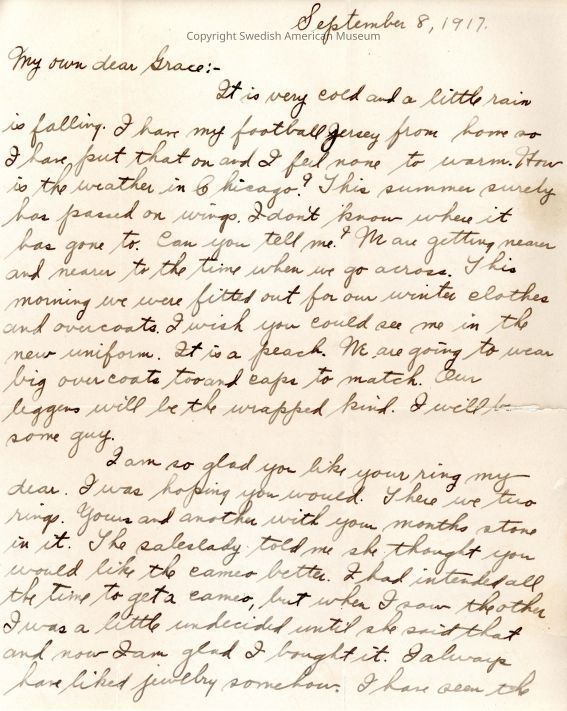 September 8, 1917.
Copyright Swedish American Museum
My own dear Grace:-
It is very cold and a little rain
is falling. I have my football jersey from home so
I have put that on and I feel none to warm. How
is the weather in Chicago? This summer surely
has passed on wings. I don't know where it
has gone to. Can you tell me? We are getting nearer
and nearer to the time when we go across. This
morning we were fitted out for our winter clothes
and overcoats. I wish you could see me in the
new uniform. It is a peach. We are going to wear
big overcoats too and caps to match. Our
leggens will be the wrapped kind. I will b
some guy.
I am so glad you like your ring my
dear. I was hoping you would. There we two
rings. Yours and another with your months stone
in it. The saleslady told me she thought you
would like the cameo better. I had intended all
the time to get a cameo, but when I saw the other
I was a little undecided until she said that
and now I am glad I bought it. I always
have liked jewelry somehow. I have seen the